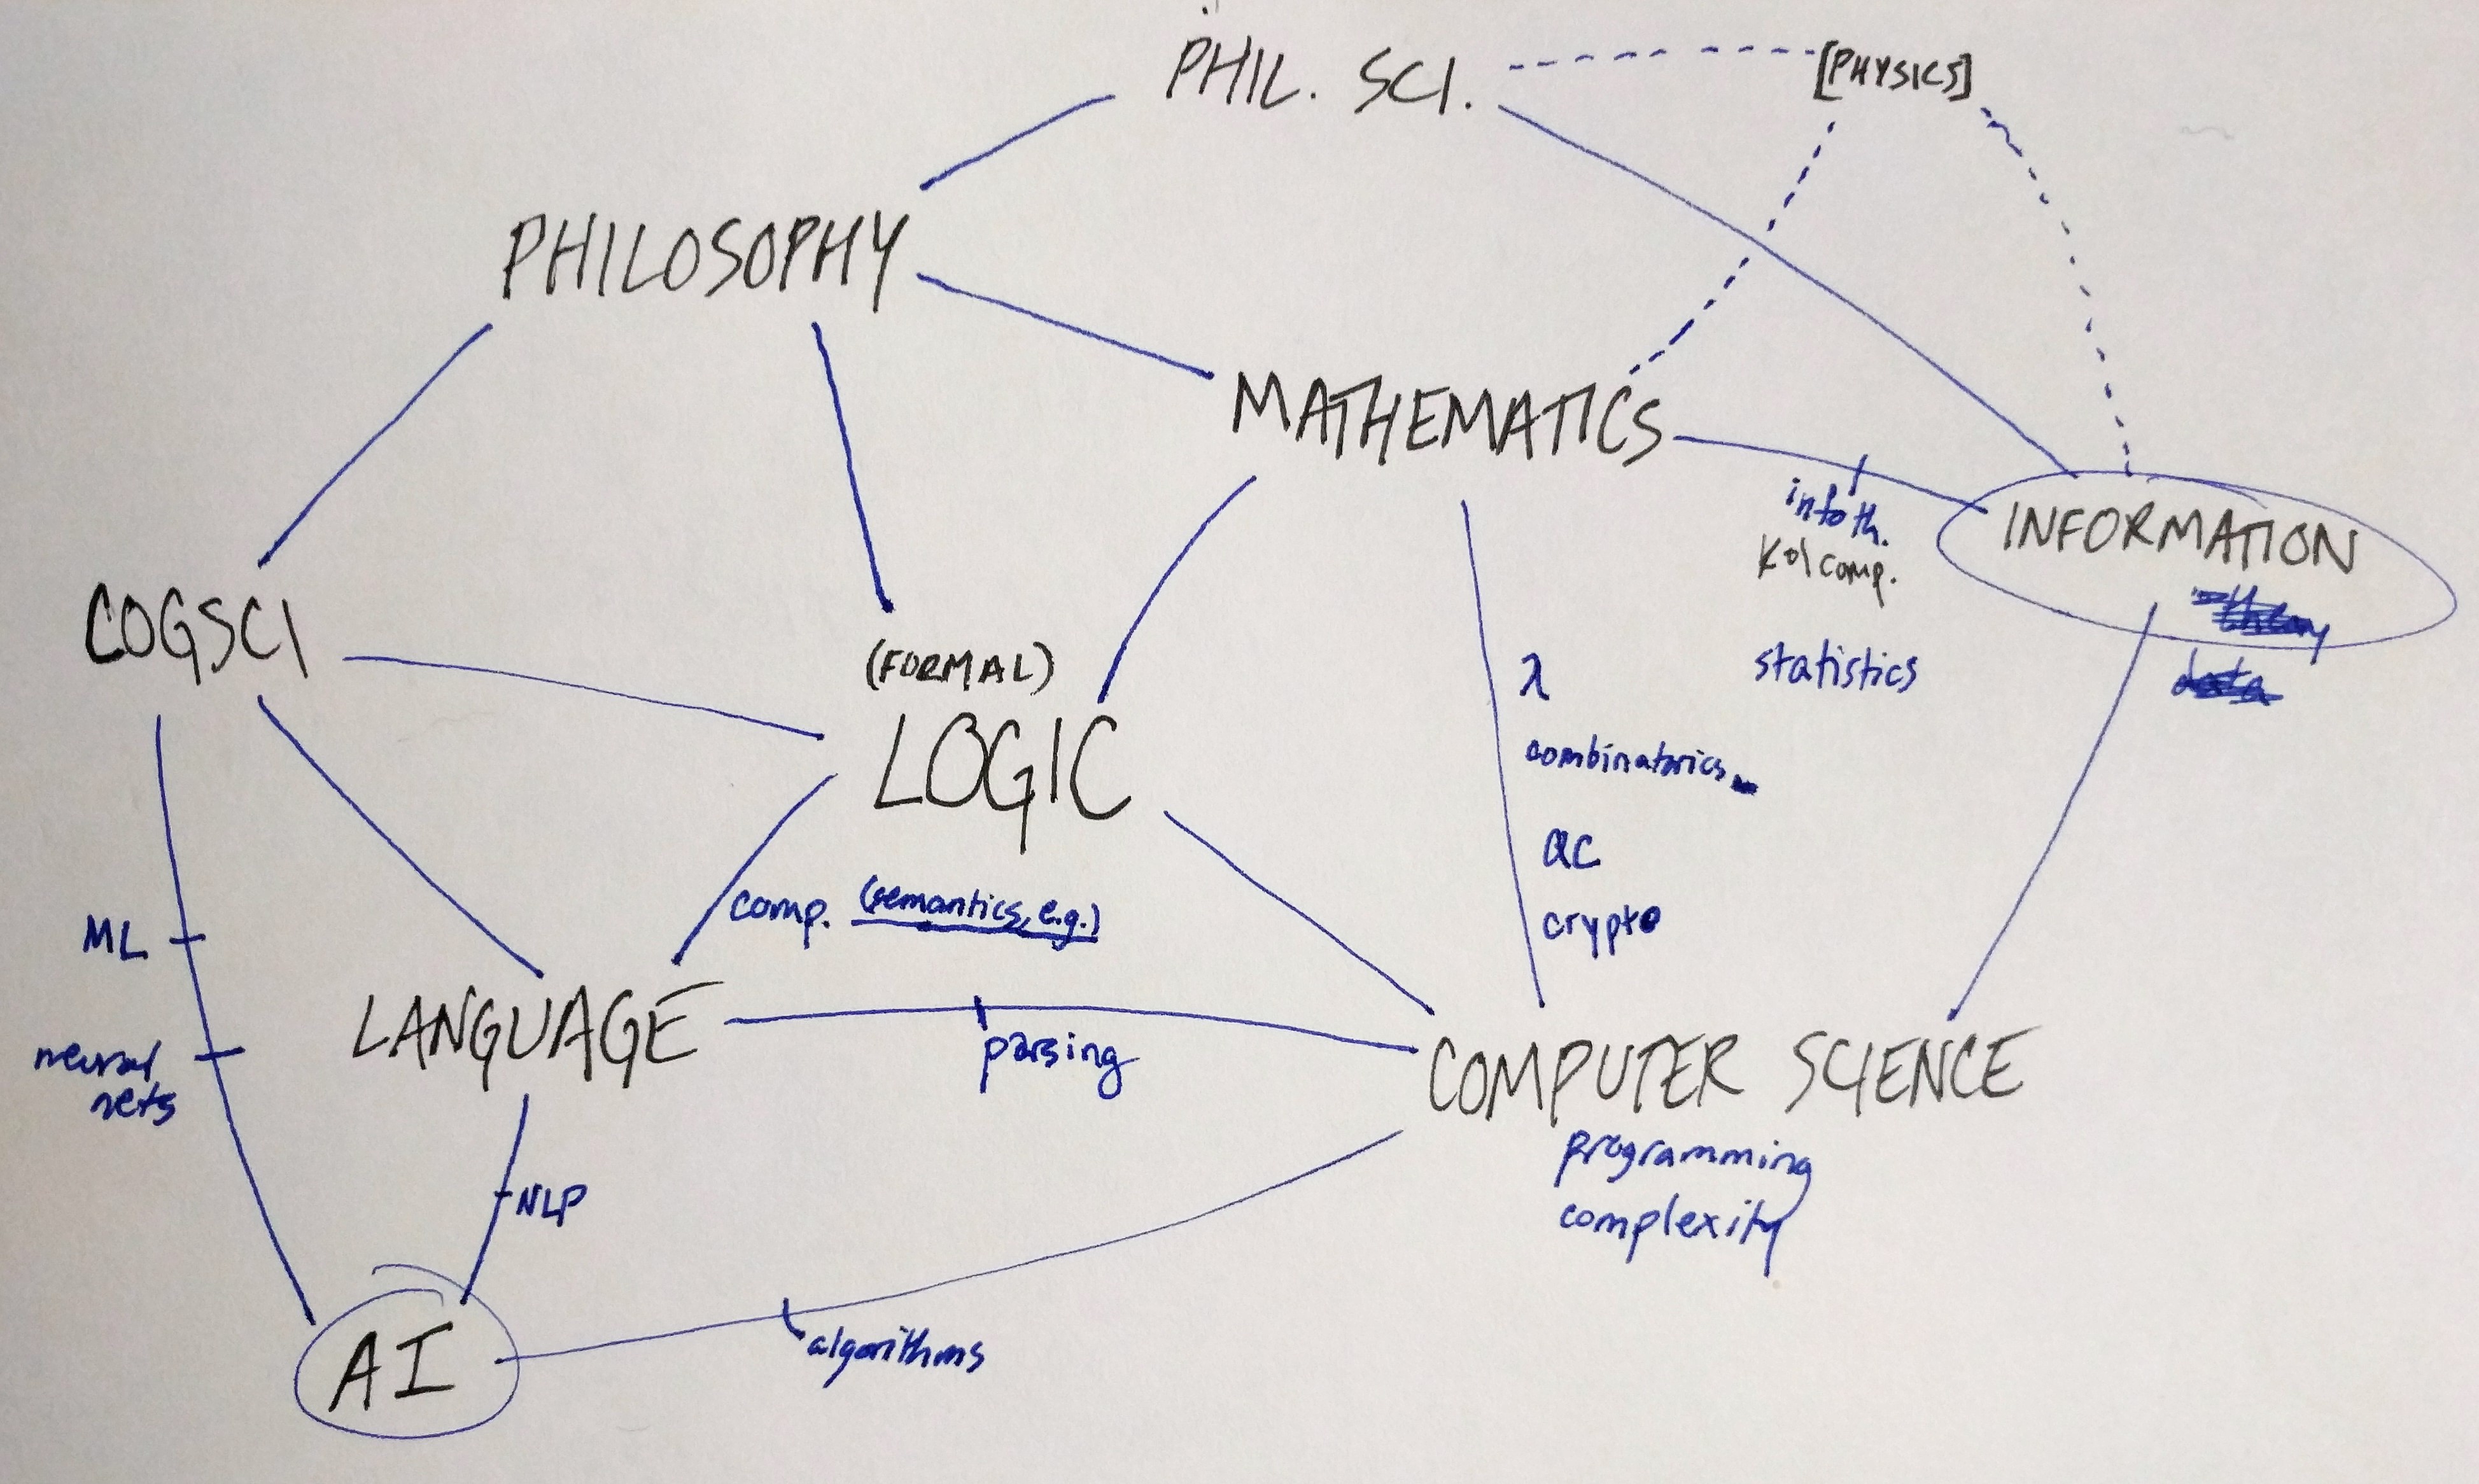 PHIL. SCI.
[PHYSICS]
PHILOSOPHY
MATHEMATICS
info th.
Kol comp.
INFORMATION
theory
data
statistics
COGSCI
(FORMAL)
LOGIC
λ
combinatorics
QC
crypto
comp. (semantics, e.g.)
ML
neural
nets
LANGUAGE
parsing
COMPUTER SCIENCE
programming
complexity
NLP
AI
algorithms